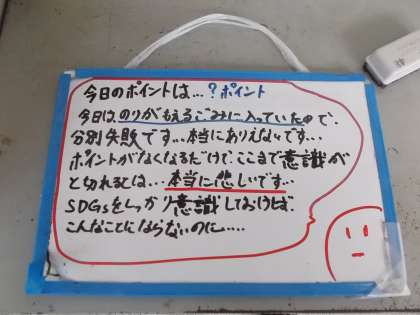 今日のポイントは…?ポイント
今日は、のりがもえるごみに入っていたので、
分別失敗です…本当にありえないです…
ポイントがなくなるだけで、ここまで意識が
と切れるとは…本当に悲しいです…
SDGsをしっかり意識しておけば、
こんなことにならないのに……